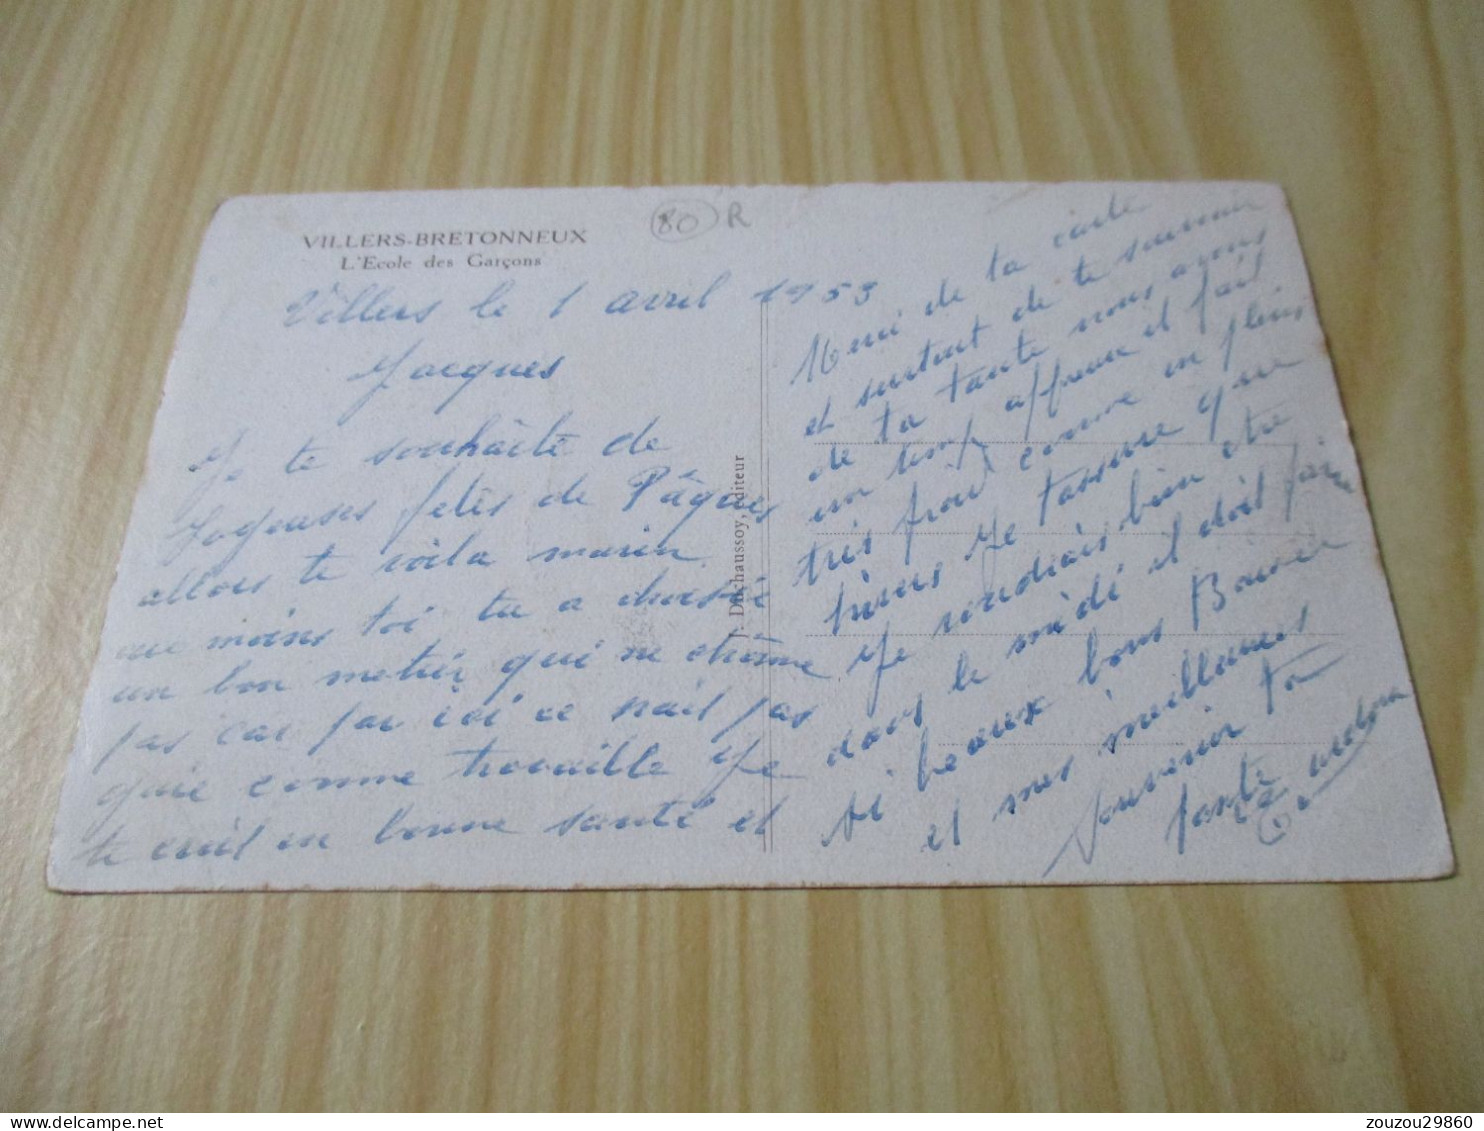 VILLERS-BRETONNEUX
L'Ecole des Garçons
80 R
Villers le 1 avril 1953
Jacques
Je te souhaite de
Joyeuses fetês de Pâques
allors te voila marin
au moins toi tu a choisie
un bon metier qui ne chôme
pas car par ici ce n'ait pas
quie comme travaille Je
te ecrit en bonne santé et
J. Duchaussoy, éditeur
Merci de ta carte
et surtout de te souvenir
de ta tante nous avons
un temp affreux il fait
très froid comme en pleins
hivers Je t'assure que
Je voudrais bien etre
dans le midi il doit faire
si beaux bons Baiser
et mes meilleures
souvenir ta
tante
zouzou29860
delcampe.net